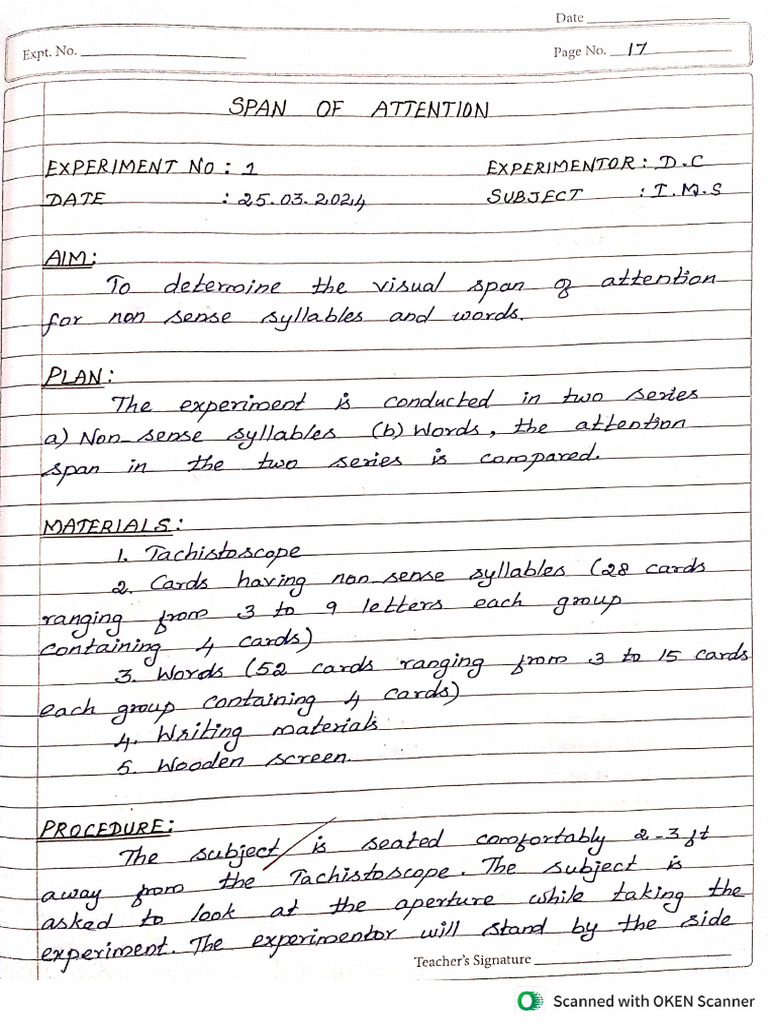 Date
Expt. No.
Page No. 17
SPAN OF ATTENTION
EXPERIMENT NO : 1 EXPERIMENTOR : D.C
DATE : 25.03.2024 SUBJECT : I.M.S
AIM:
To determine the visual span of attention
for non sense syllables and words.
PLAN:
The experiment is conducted in two series
a) Non-sense syllables (b) Words, the attention
span in the two series is compared.
MATERIALS:
1. Tachistoscope
2. Cards having non sense syllables (28 cards
ranging from 3 to 9 letters each group
containing 4 cards)
3. Words (52 cards ranging from 3 to 15 cards
each group containing 4 cards)
4. Writing materials
5. Wooden screen.
PROCEDURE:
The subject is seated comfortably 2-3 ft
away from the Tachistoscope. The subject is
asked to look at the aperture while taking the
experiment. The experimentor will stand by the side
Teacher's Signature
Scanned with OKEN Scanner